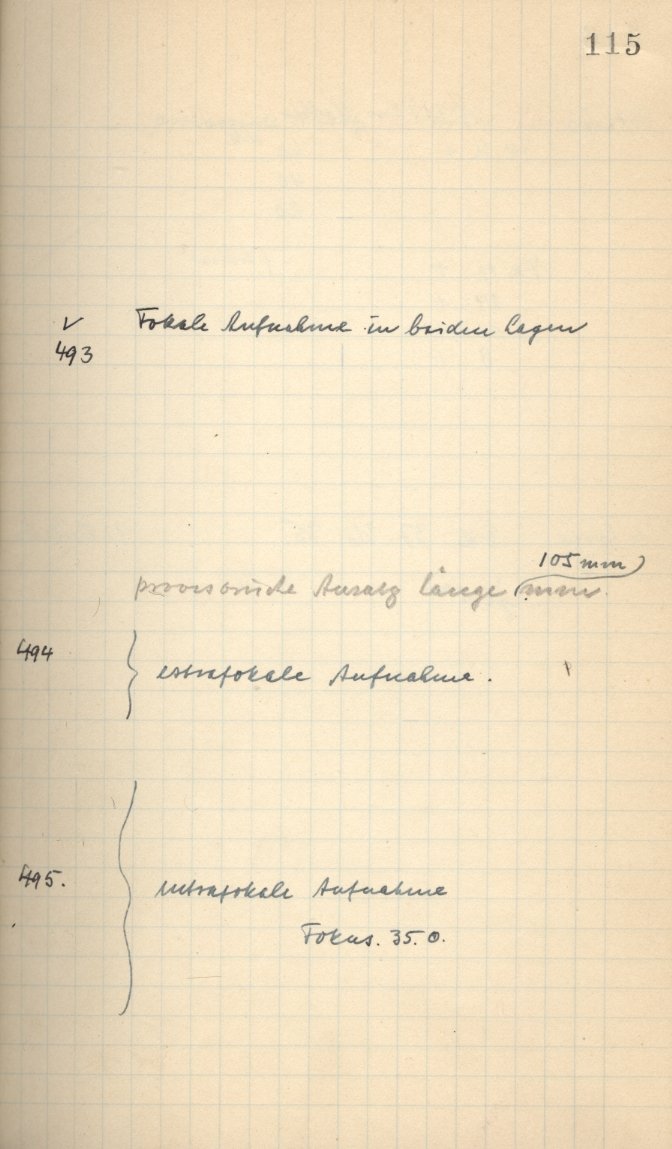 115
✓ Fokale Aufnahme in beiden Lagen
493
105 mm
provisorische Ansatz länge mm.
494 extrafokale Aufnahme.
495. intrafokale Aufnahme
Fokus. 35.0.